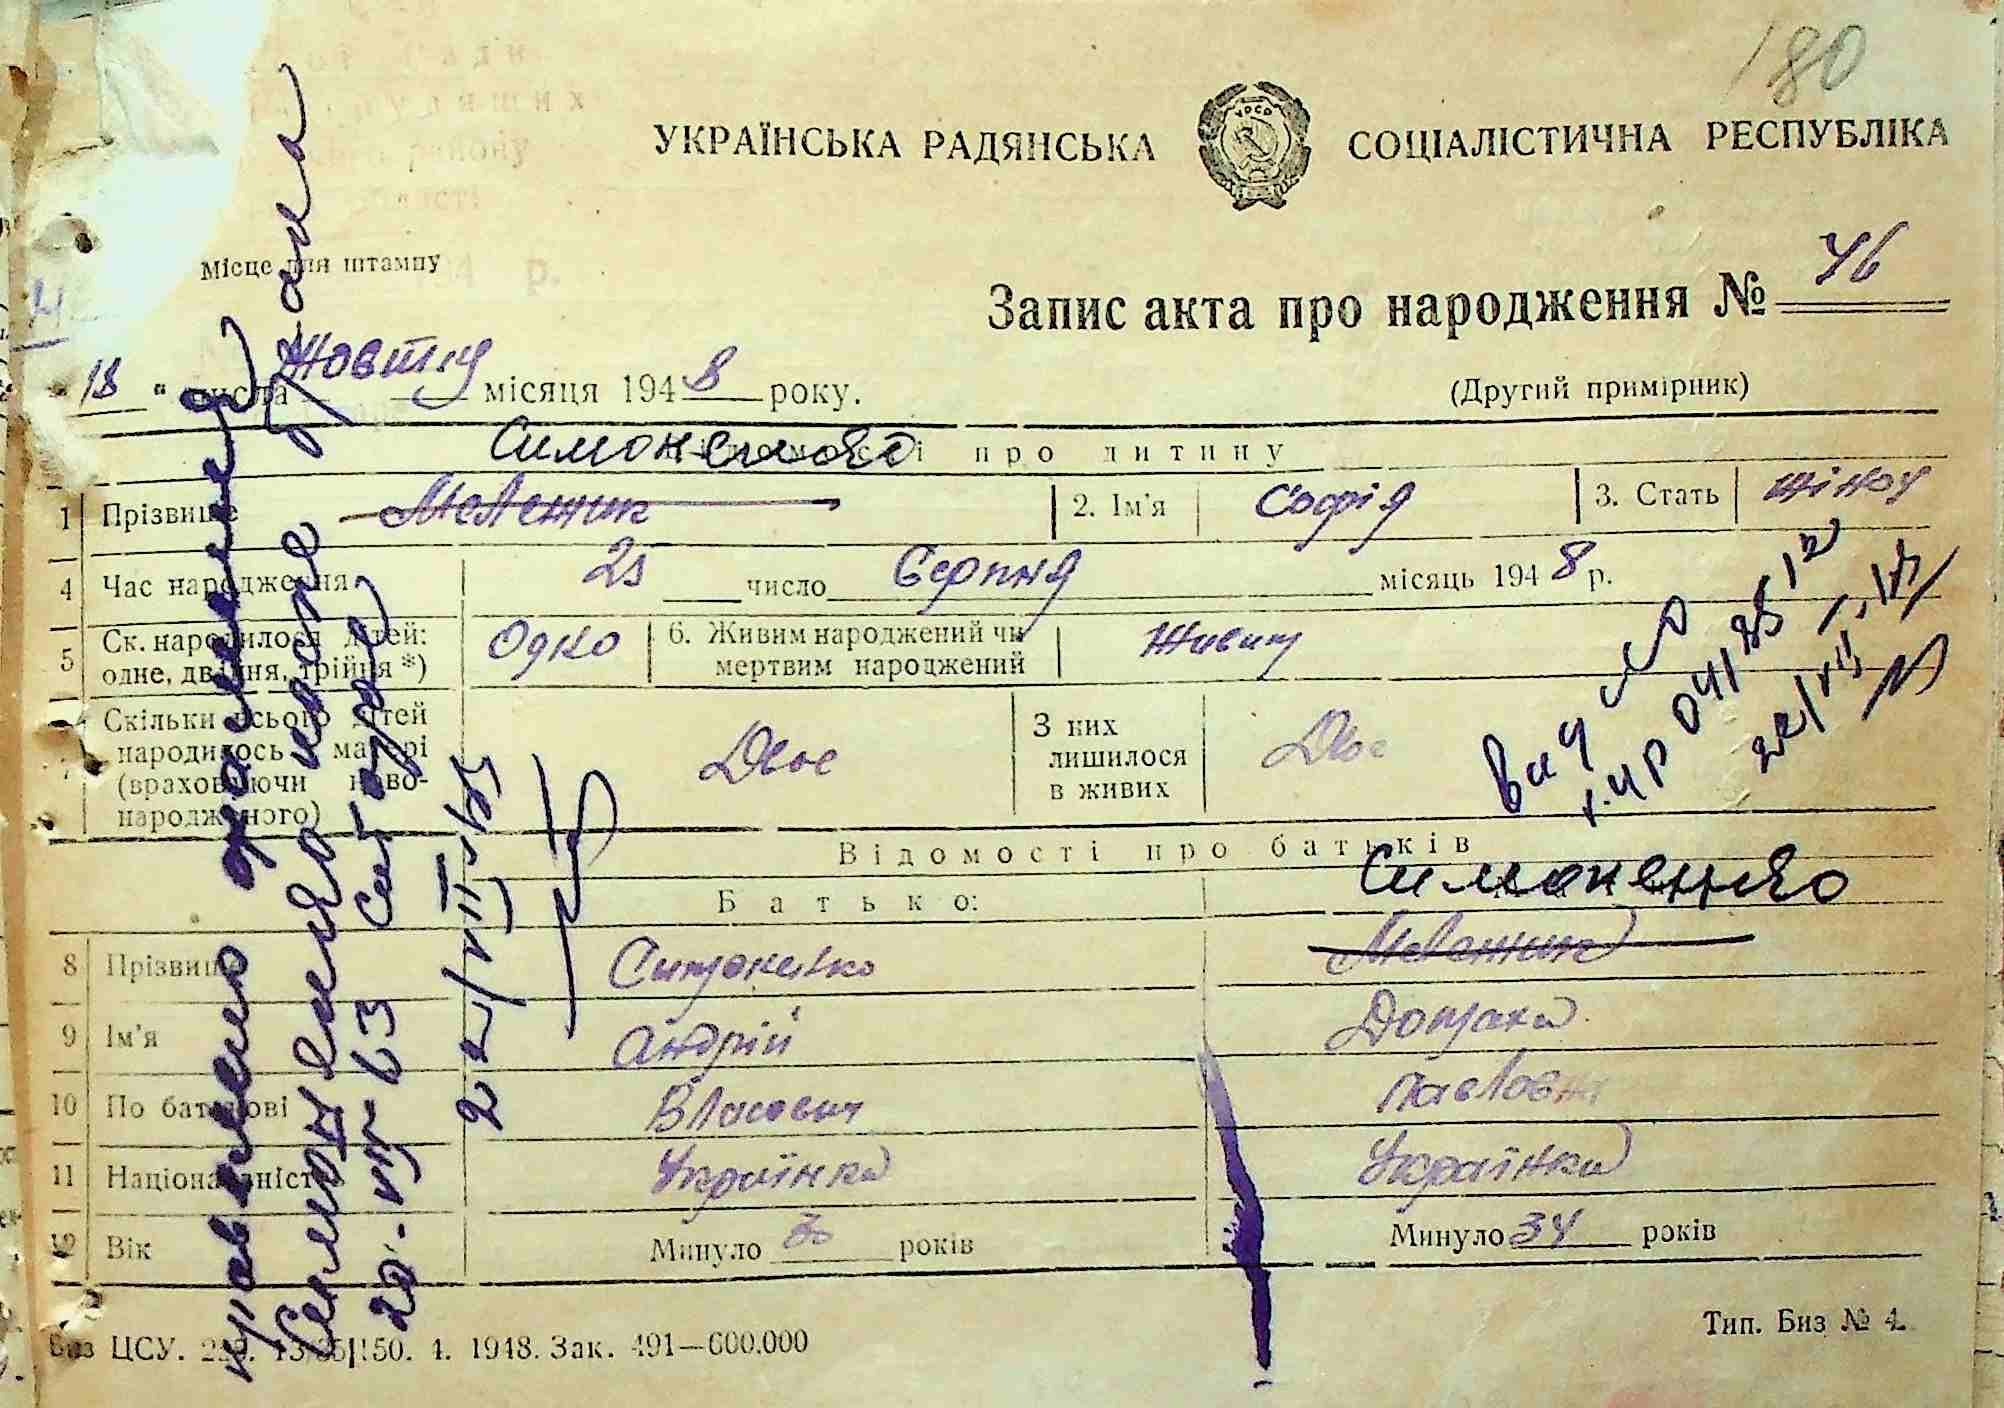 180
УКРАЇНСЬКА РАДЯНСЬКА СОЦІАЛІСТИЧНА РЕСПУБЛІКА
УРСР
Місце для штампу
Запис акта про народження № 46
"18" числа Жовтня місяця 1948 року.
(Другий примірник)
Відомості про дитину
Симоненко
1 Прізвище Мележик 2. Ім'я Софія 3. Стать жіноч
4 Час народження 23 число Серпня місяць 1948 р.
5 Ск. народилося дітей: одне, двійня, трійця *) Одно 6. Живим народжений чи мертвим народжений Живим
Скільки всього дітей народилось у матері (враховуючи ново-народженого) Двоє З них лишилося в живих Двоє
Відомості про батьків
Батько:
Симоненко
8 Прізвище Симоненко Мележик
9 Ім'я Андрій Домаха
10 По батькові Власович Павловна
11 Національність Українка Українка
12 Вік Минуло років Минуло 34 років
Биз ЦСУ. 1948. Зак. 491—600.000
Тип. Биз № 4.